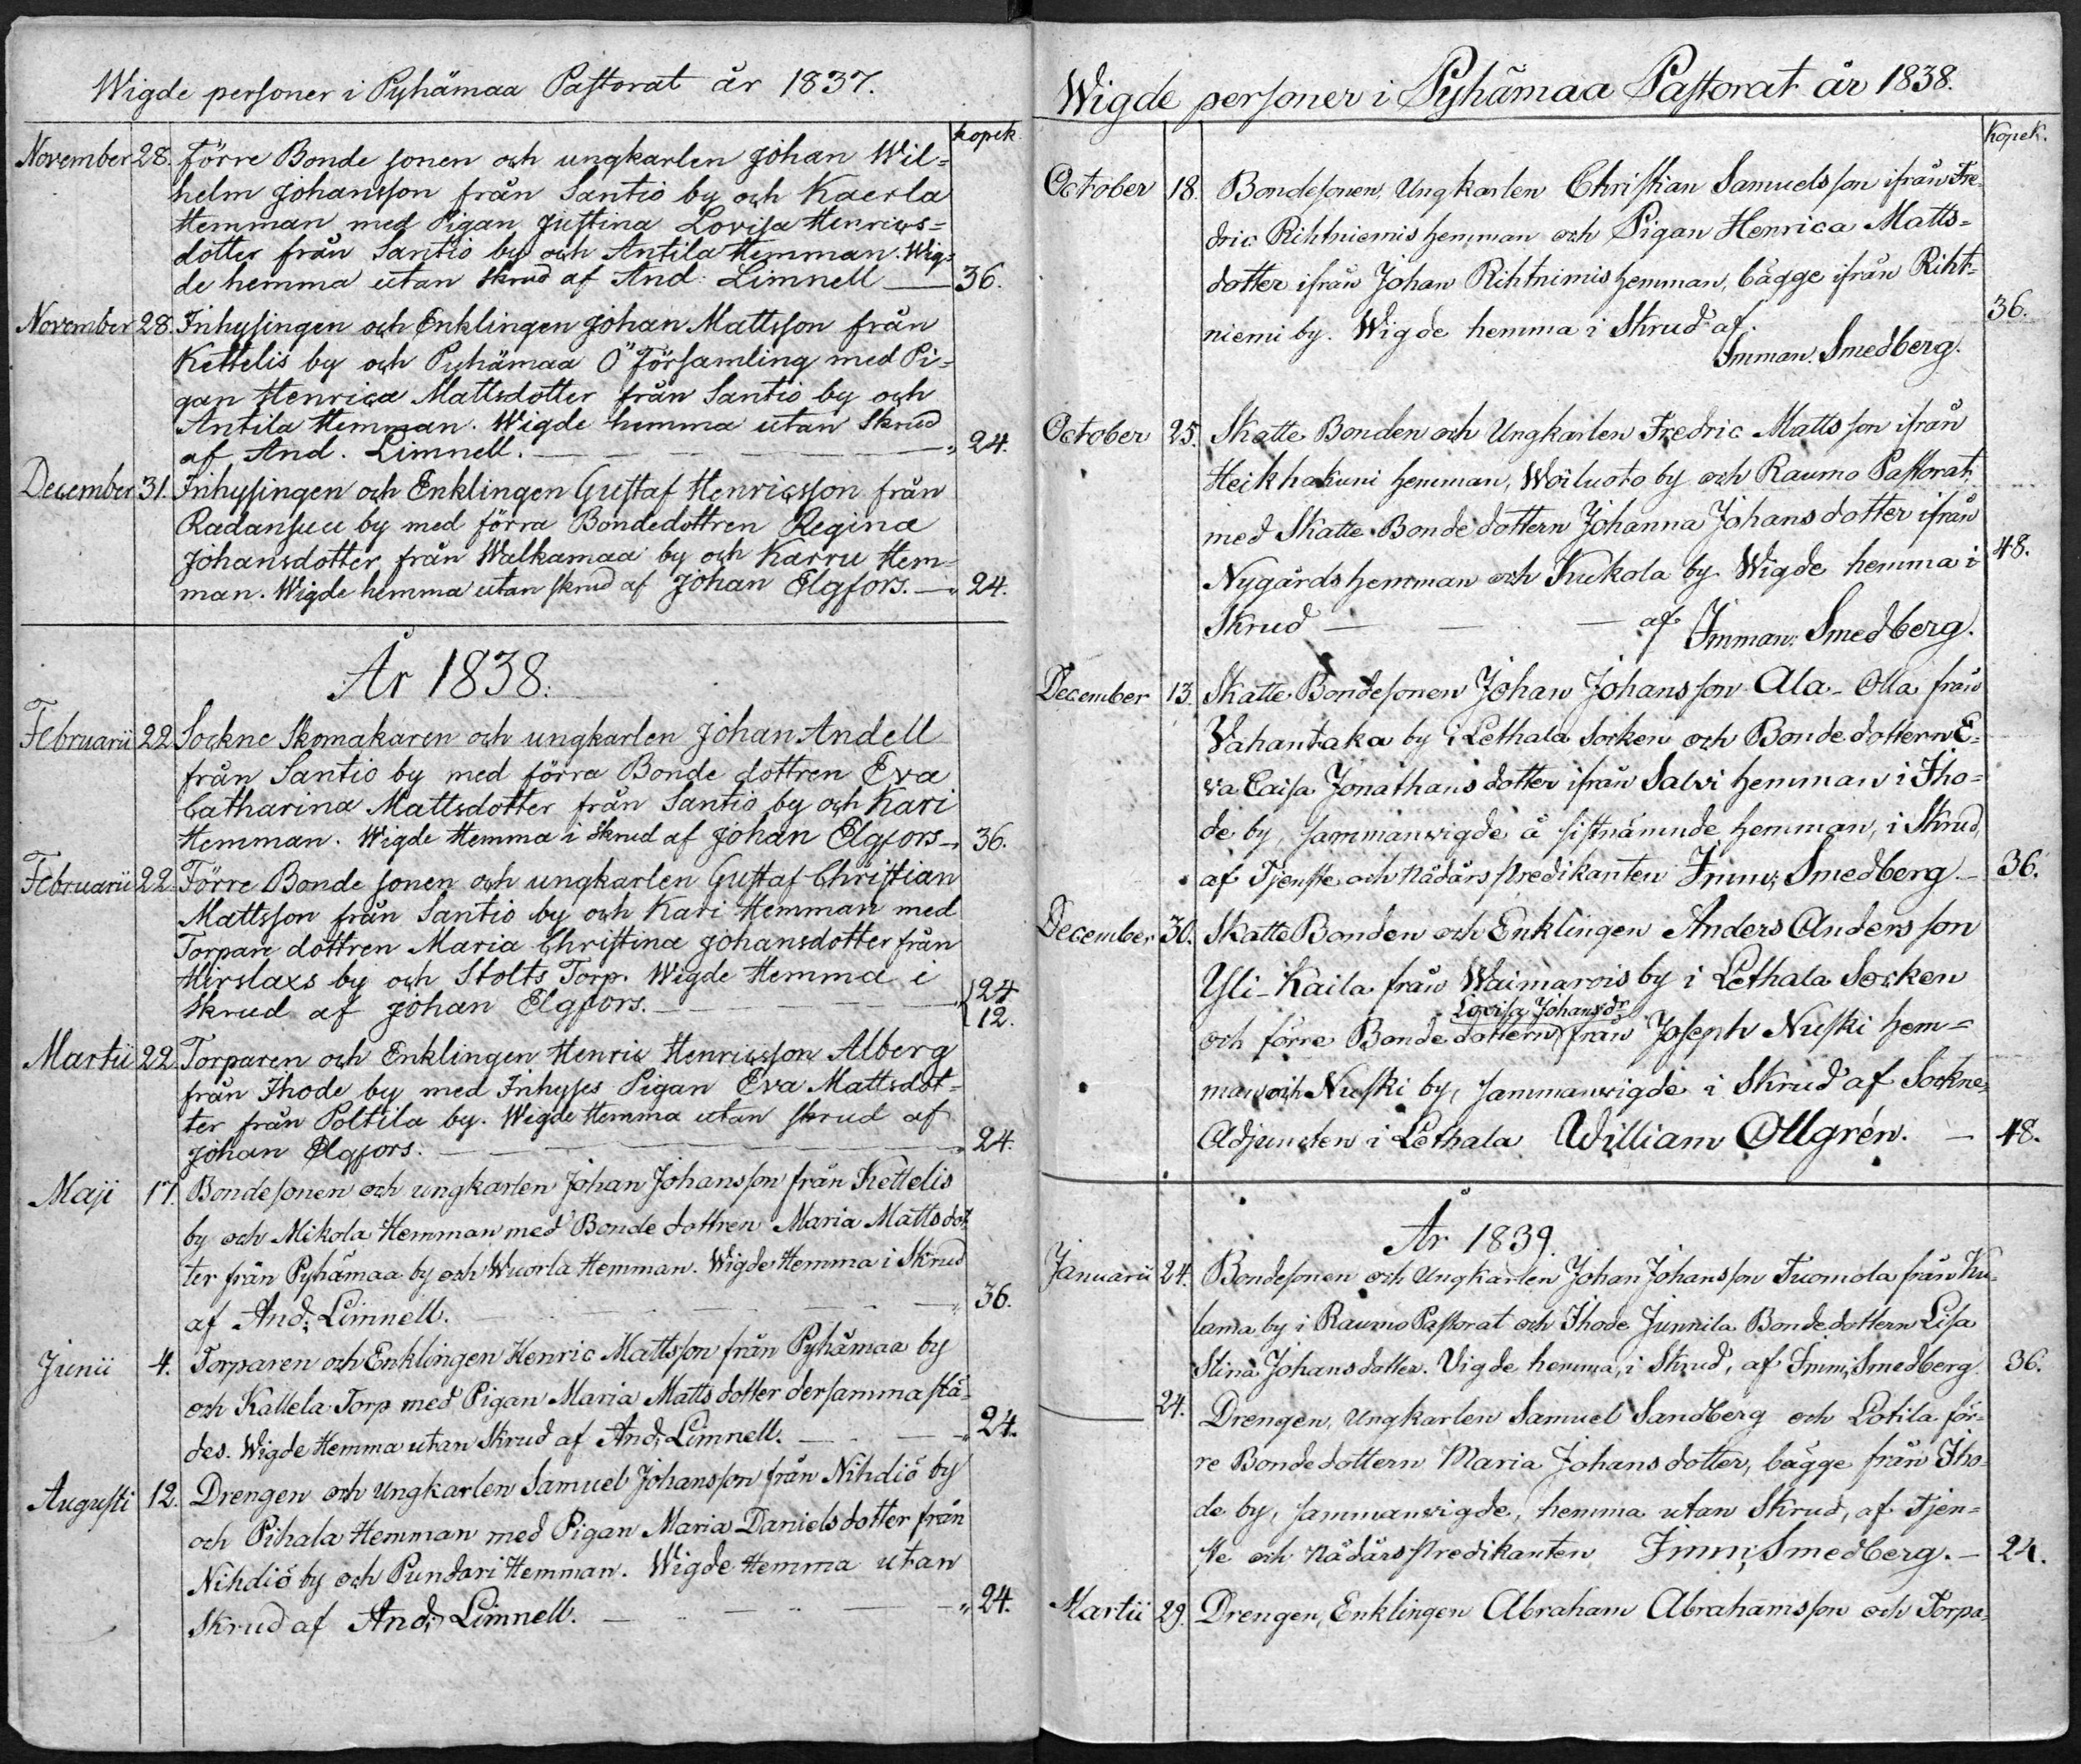 Wigde personer i Pyhämaa Pastorat år 1837.
kopek.
November 28. Förre Bonde sonen och ungkarlen Johan Wil=
helm Johansson från Santio by och Kaerla
Hemman med Pigan Justina Lovisa Henrics=
dotter från Santio by och Antila Hemman. Wig=
de hemma utan skrud af And. Limnell — 36.
November 28. Inhysingen och Enklingen Johan Mattsson från
Kettelis by och Pyhämaa Ö Församling med Pi=
gan Henrica Mattsdotter från Santio by och
Antila Hemman. Wigde hemma utan Skrud
af And. Limnell. — 24.
December 31. Inhysingen och Enklingen Gustaf Henricsson från
Radansuu by med förra Bondedottren Regina
Johansdotter från Walkamaa by och Karru Hem=
man. Wigde hemma utan skrud af Johan Elgfors. — 24.
År 1838.
Februarii 22. Sockne Skomakaren och ungkarlen Johan Andell
från Santio by med förra Bonde dottren Eva
Catharina Mattsdotter från Santio by och Kari
Hemman. Wigde Hemma i skrud af Johan Elgfors — 36.
Februarii 22. Förre Bonde sonen och ungkarlen Gustaf Christian
Mattsson från Santio by och Kari Hemman med
Torpare dottren Maria Christina Johansdotter från
Hirslaxs by och Stolts Torp. Wigde Hemma i
skrud af Johan Elgfors. — 24
12.
Martii 22 Torparen och Enklingen Henric Henricsson Alberg
från Ihode by med Inhyses Pigan Eva Mattsdot=
ter från Poltila by. Wigde Hemma utan skrud af
Johan Elgfors. — 24.
Maji 17. Bondesonen och ungkarlen Johan Johansson från Kettelis
by och Mikola Hemman med Bonde dottren Maria Mattsdot=
ter från Pyhämaa by och Wuorla Hemman. Wigde Hemma i Skrud
af And; Limnell. — 36.
Junii 4. Torparen och Enklingen Henric Mattsson från Pyhämaa by
och Kallela Torp med Pigan Maria Mattsdotter dersamma stä=
des. Wigde Hemma utan Skrud af And; Limnell. — 24.
Augusti 12. Drengen och Ungkarlen Samuel Johansson från Nihdiö by
och Pihala Hemman med Pigan Maria Danielsdotter från
Nihdiö by och Pundari Hemman. Wigde Hemma utan
Skrud af And; Limnell. — 24.
Wigde personer i Pyhämaa Pastorat år 1838.
Kopek.
October 18. Bondesonen, Ungkarlen Christian Samuelsson ifrån Fre=
dric Rihtniemis hemman och Pigan Henrica Matts=
dotter ifrån Johan Rihtnimis hemman, bägge ifrån Riht=
niemi by. Wigde hemma i Skrud af 36.
Imman. Smedberg.
October 25. Skatte Bonden och Ungkarlen Fredric Mattsson ifrån
Heikhakuni hemman, Woiluoto by och Raumo Pastorat,
med Skatte Bonde dottern Johanna Johansdotter ifrån
Nygårds hemman och Kukola by. Wigde hemma i 48.
Skrud — af Imman: Smedberg.
December 13. Skatte Bondesonen Johan Johansson Ala-Olla från
Vahantaka by i Lethala Socken och Bonde dottern E=
va Caisa Jonathans dotter ifrån Salvi hemman i Iho=
de by, sammanvigde å sistnämnde hemman, i Skrud,
af Tjenste och Nådårs Predikanten Imm; Smedberg. — 36.
December 30. Skatte Bonden och Enklingen Anders Andersson
Yli-Kaila från Waimarois by i Lethala Socken
Lovisa Johansdr
och förre Bonde dottern från Joseph Nuski hem=
man och Nuski by, sammanvigde i Skrud af Sockne
Adjuncten i Lethala William Ollgrén. — 48.
År 1839.
Januarii 24. Bondesonen och Ungkarlen Johan Johansson Tuomola från Ku=
lama by i Raumo Pastorat och Ihode Junnila Bondedottern Lisa
Stina Johansdotter. Vigde hemma, i Skrud, af Imm; Smedberg. 36.
24. Drengen, Ungkarlen Samuel Sandberg och Lotila för=
re Bondedottern Maria Johansdotter, bägge från Iho=
de by, sammanvigde, hemma utan Skrud, af Tjen=
ste och Nådårs Predikanten Imm; Smedberg. — 24.
Martii 29. Drengen, Enklingen Abraham Abrahamsson och Torpa=